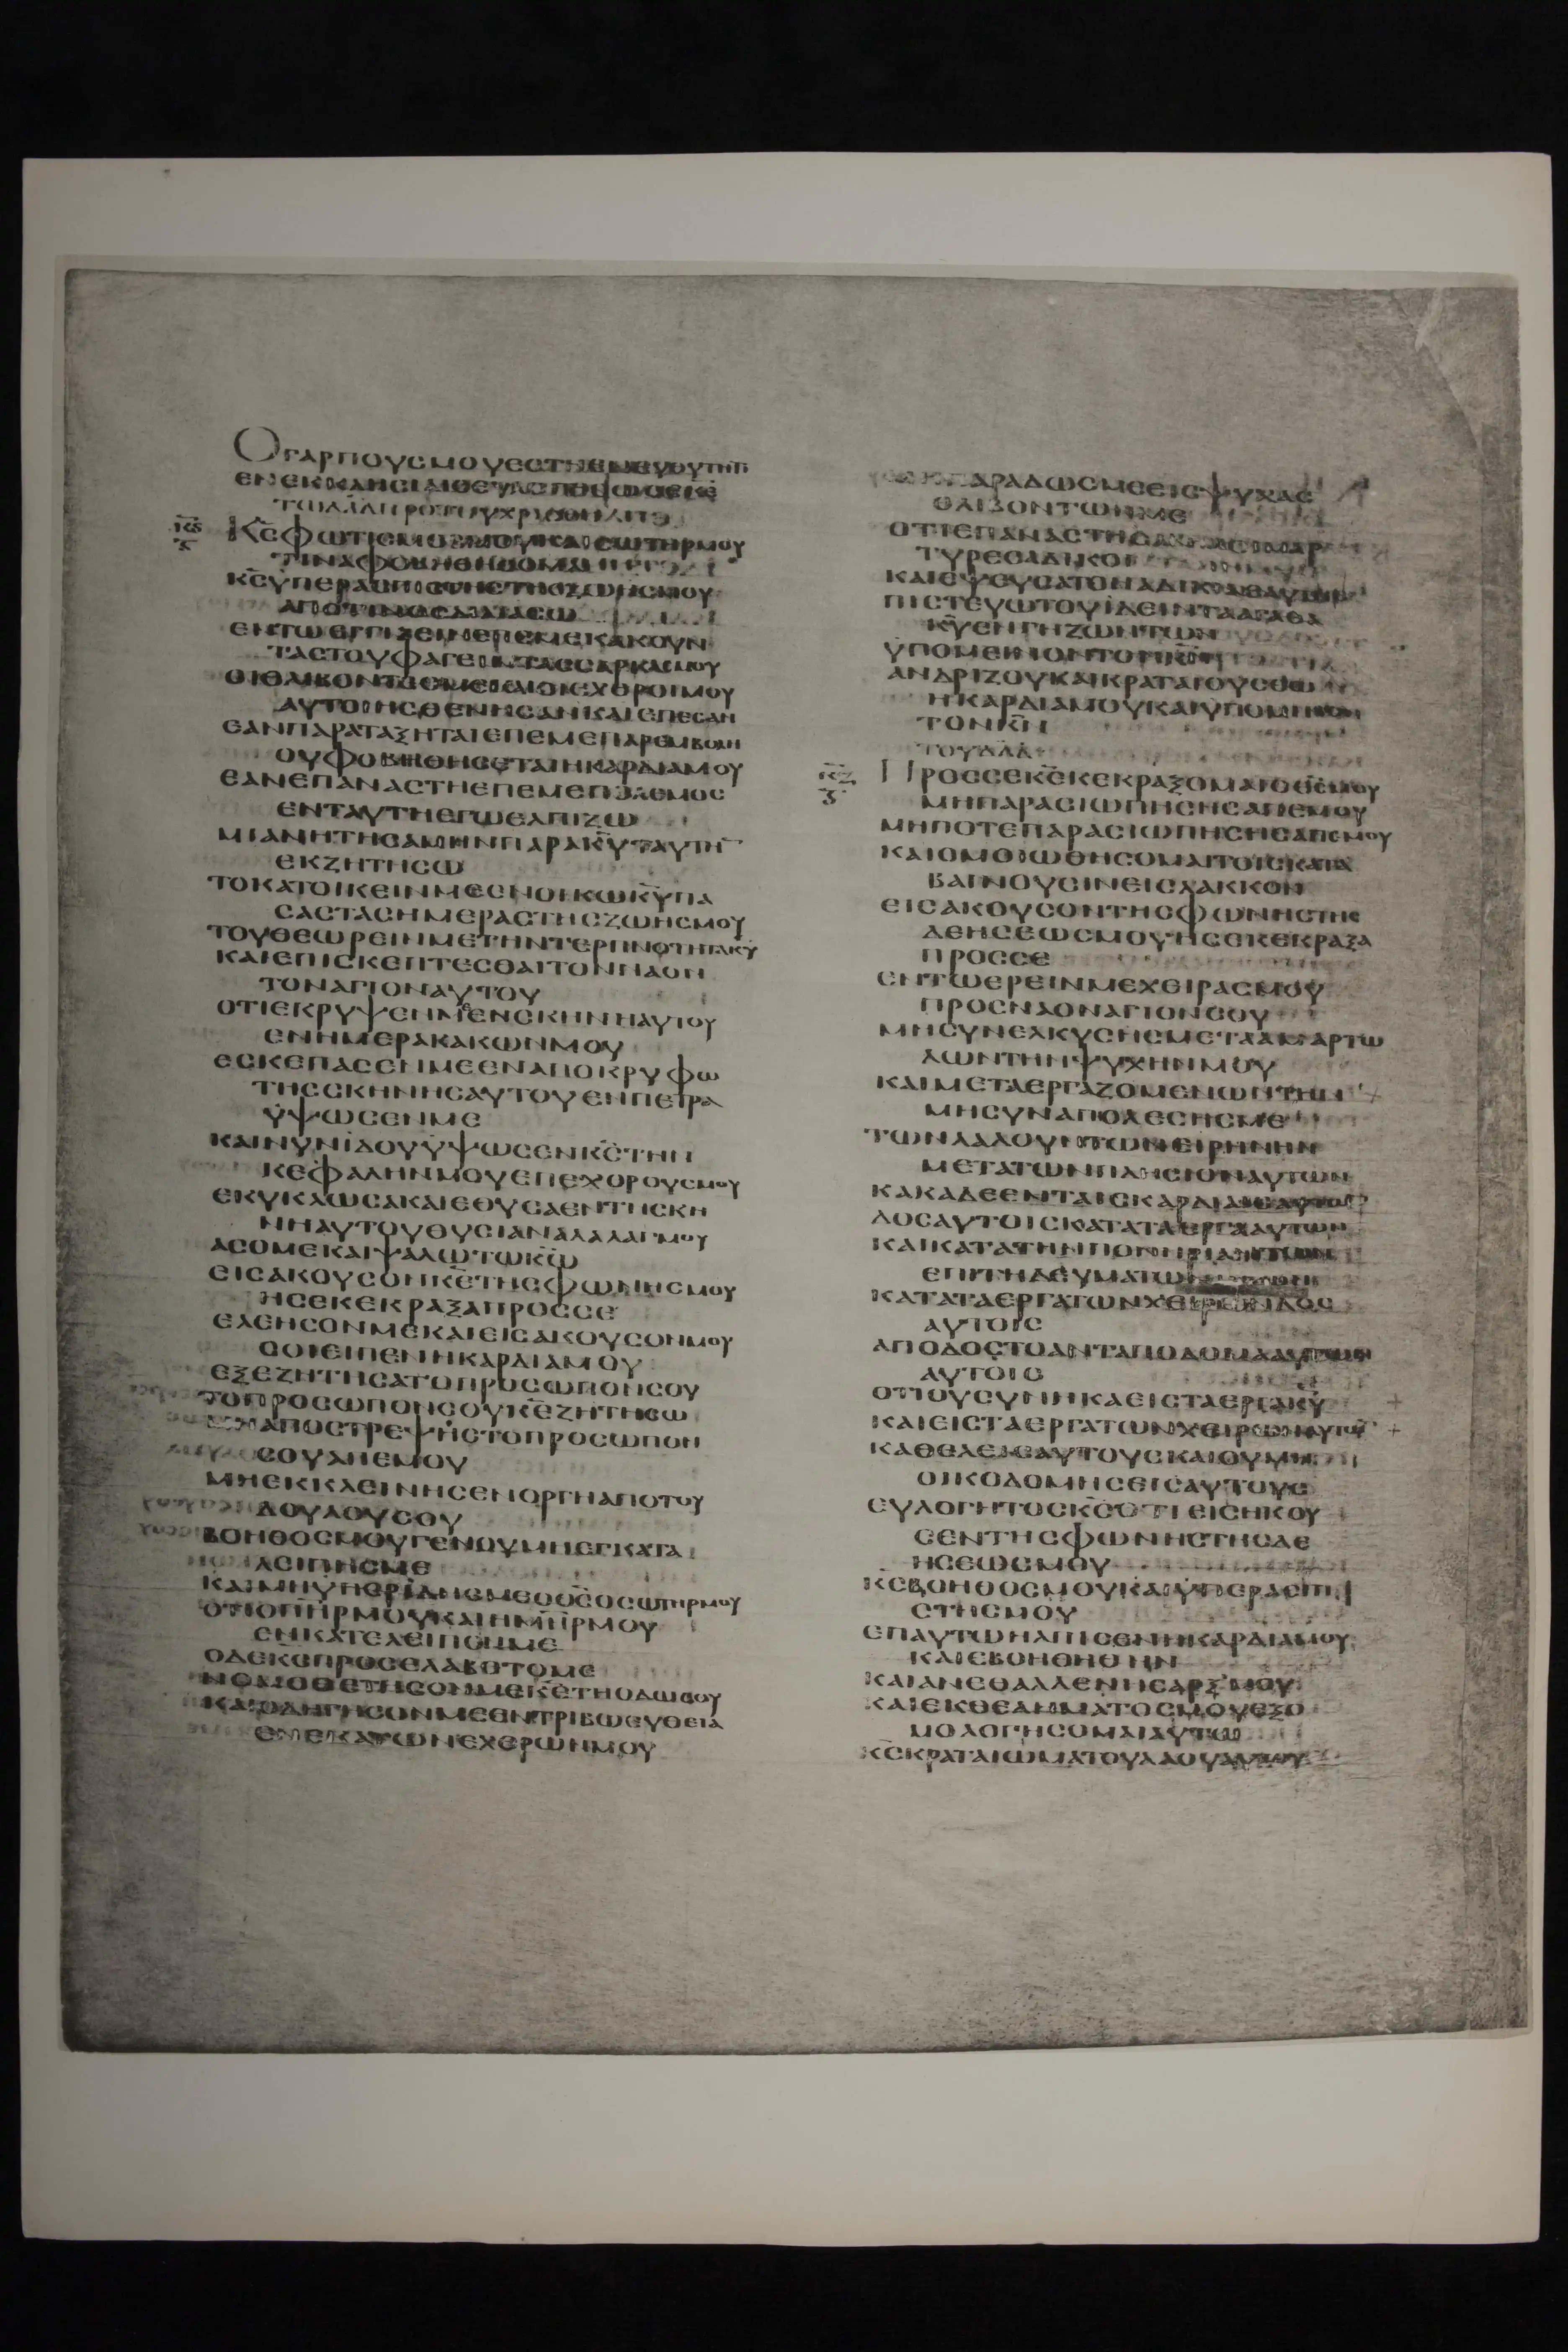 ΟΓΑΡΠΟΥCΜΟΥΕCΤΗΕΝΕΥΘΥΤΗΤΙ
ΕΝΕΚΚΛΗCΙΑΙC
ΤΩΔΑΔΠΡΟΤΟΥΧΡΙCΘΗΝΑΙ
Κ̅Ϛ̅
Κ̅C̅ΦΩΤΙCΜΟCΜΟΥΚΑΙCΩΤΗΡΜΟΥ
ΤΙΝΑΦΟΒΗΘΗCΟΜΑΙ
Κ̅C̅ΥΠΕΡΑCΠΙCΤΗCΤΗCΖΩΗCΜΟΥ
ΑΠΟΤΙΝΟCΔΙΛΙΑCΩ
ΕΝΤΩΕΓΓΙΖΕΙΝΕΠΕΜΕΚΑΚΟΥΝ
ΤΑCΤΟΥΦΑΓΕΙΝΤΑCCΑΡΚΑCΜΟΥ
ΟΙΘΛΙΒΟΝΤΕCΜΕΚΑΙΟΙΕΧΘΡΟΙΜΟΥ
ΑΥΤΟΙΗCΘΕΝΗCΑΝΚΑΙΕΠΕCΑΝ
ΕΑΝΠΑΡΑΤΑΞΗΤΑΙΕΠΕΜΕΠΑΡΕΜΒΟΛΗ
ΟΥΦΟΒΗΘΗCΕΤΑΙΗΚΑΡΔΙΑΜΟΥ
ΕΑΝΕΠΑΝΑCΤΗΕΠΕΜΕΠΟΛΕΜΟC
ΕΝΤΑΥΤΗΕΓΩΕΛΠΙΖΩ
ΜΙΑΝΗΤΗCΑΜΗΝΠΑΡΑΚ̅Υ̅ΤΑΥΤΗ̅
ΕΚΖΗΤΗCΩ
ΤΟΚΑΤΟΙΚΕΙΝΜΕΕΝΟΙΚΩΚ̅Υ̅ΠΑ
CΑCΤΑCΗΜΕΡΑCΤΗCΖΩΗCΜΟΥ
ΤΟΥΘΕΩΡΕΙΝΜΕΤΗΝΤΕΡΠΝΟΤΗΤΑΚ̅Υ̅
ΚΑΙΕΠΙCΚΕΠΤΕCΘΑΙΤΟΝΝΑΟΝ
ΤΟΝΑΓΙΟΝΑΥΤΟΥ
ΟΤΙΕΚΡΥΨΕΝΜΕΕΝCΚΗΝΗΑΥΤΟΥ
ΕΝΗΜΕΡΑΚΑΚΩΝΜΟΥ
ΕCΚΕΠΑCΕΝΜΕΕΝΑΠΟΚΡΥΦΩ
ΤΗCCΚΗΝΗCΑΥΤΟΥΕΝΠΕΤΡΑ
ΥΨΩCΕΝΜΕ
ΚΑΙΝΥΝΙΔΟΥΥΨΩCΕΝΚ̅C̅ΤΗΝ
ΚΕΦΑΛΗΝΜΟΥΕΠΕΧΘΡΟΥCΜΟΥ
ΕΚΥΚΛΩCΑΚΑΙΕΘΥCΑΕΝΤΗCΚΗ
ΝΗΑΥΤΟΥΘΥCΙΑΝΑΛΑΛΑΓΜΟΥ
ΑCΟΜΕΚΑΙΨΑΛΩΤΩΚ̅Ω̅
ΕΙCΑΚΟΥCΟΝΚ̅Ε̅ΤΗCΦΩΝΗCΜΟΥ
ΗCΕΚΕΚΡΑΞΑΠΡΟCCΕ
ΕΛΕΗCΟΝΜΕΚΑΙΕΙCΑΚΟΥCΟΝΜΟΥ
CΟΙΕΙΠΕΝΗΚΑΡΔΙΑΜΟΥ
ΕΞΕΖΗΤΗCΑΤΟΠΡΟCΩΠΟΝCΟΥ
ΤΟΠΡΟCΩΠΟΝCΟΥΚ̅Ε̅ΖΗΤΗCΩ
ΜΗΑΠΟCΤΡΕΨΗCΤΟΠΡΟCΩΠΟΝ
CΟΥΑΠΕΜΟΥ
ΜΗΕΚΚΛΕΙΝΗCΕΝΟΡΓΗΑΠΟΤΟΥ
ΔΟΥΛΟΥCΟΥ
ΒΟΗΘΟCΜΟΥΓΕΝΟΥΜΗΕΓΚΑΤΑ
ΛΕΙΠΗCΜΕ
ΚΑΙΜΗΥΠΕΡΙΔΗCΜΕΟΘ̅C̅ΟCΩΤΗΡΜΟΥ
ΟΤΙΟΠ̅Η̅Ρ̅ΜΟΥΚΑΙΗΜ̅Η̅Ρ̅ΜΟΥ
ΕΝΚΑΤΕΛΕΙΠΟΝΜΕ
ΟΔΕΚ̅C̅ΠΡΟCΕΛΑΒΕΤΟΜΕ
ΝΟΜΟΘΕΤΗCΟΝΜΕΚ̅Ε̅ΤΗΟΔΩCΟΥ
ΚΑΙΟΔΗΓΗCΟΝΜΕΕΝΤΡΙΒΩΕΥΘΕΙΑ
ΕΝΕΚΑΤΩΝΕΧΘΡΩΝΜΟΥ
ΠΑΡΑΔΩCΜΕΕΙCΨΥΧΑC
ΘΛΙΒΟΝΤΩΝΜΕ
ΟΤΙΕΠΑΝΕCΤΗCΑΝ
ΤΥΡΕCΑΔΙΚΟΙ
ΚΑΙΕΨΕΥCΑΤΟΗΑΔΙΚΙΑΕΑΥΤΗ
ΠΙCΤΕΥΩΤΟΥΙΔΕΙΝΤΑΑΓΑΘΑ
Κ̅Υ̅ΕΝΓΗΖΩΝΤΩΝ
ΥΠΟΜΕΙΝΟΝΤΟΝΚ̅Ν̅
ΑΝΔΡΙΖΟΥΚΑΙΚΡΑΤΑΙΟΥCΘΩ
ΗΚΑΡΔΙΑΜΟΥΚΑΙΥΠΟΜΙΝΟΝ
ΤΟΝΚ̅Ν̅
ΤΟΥΔΑΔ
Κ̅Ζ̅
ΠΡΟCCΕΚ̅Ε̅ΚΕΚΡΑΞΟΜΑΙΟΘ̅C̅ΜΟΥ
ΜΗΠΑΡΑCΙΩΠΗCΗCΑΠΕΜΟΥ
ΜΗΠΟΤΕΠΑΡΑCΙΩΠΗCΗCΑΠΕΜΟΥ
ΚΑΙΟΜΟΙΩΘΗCΟΜΑΙΤΟΙCΚΑΤΑ
ΒΑΙΝΟΥCΙΝΕΙCΛΑΚΚΟΝ
ΕΙCΑΚΟΥCΟΝΤΗCΦΩΝΗCΤΗC
ΔΕΗCΕΩCΜΟΥΗCΕΚΕΚΡΑΞΑ
ΠΡΟCCΕ
ΕΝΤΩΕΡΕΙΝΜΕΧΕΙΡΑCΜΟΥ
ΠΡΟCΝΑΟΝΑΓΙΟΝCΟΥ
ΜΗCΥΝΕΛΚΥCΗCΜΕΤΑΑΜΑΡΤΩ
ΛΩΝΤΗΝΨΥΧΗΝΜΟΥ
ΚΑΙΜΕΤΑΕΡΓΑΖΟΜΕΝΩΝΤΗΝ
ΜΗCΥΝΑΠΟΛΕCΗCΜΕ
ΤΩΝΛΑΛΟΥΝΤΩΝΕΙΡΗΝΗΝ
ΜΕΤΑΤΩΝΠΛΗCΙΟΝΑΥΤΩΝ
ΚΑΚΑΔΕΕΝΤΑΙCΚΑΡΔΙΑΙCΑΥΤΩ
ΔΟCΑΥΤΟΙCΚΑΤΑΤΑΕΡΓΑΑΥΤΩΝ
ΚΑΙΚΑΤΑΤΗΝΠΟΝΗΡΙΑΝΤΩΝ
ΕΠΙΤΗΔΕΥΜΑΤΩΝ
ΚΑΤΑΤΑΕΡΓΑΤΩΝΧΕΙΡΩΝΔΟC
ΑΥΤΟΙC
ΑΠΟΔΟCΤΟΑΝΤΑΠΟΔΟΜΑΑΥΤΩΝ
ΑΥΤΟΙC
ΟΤΙΟΥCΥΝΗΚΑΕΙCΤΑΕΡΓΑΚ̅Υ̅
ΚΑΙΕΙCΤΑΕΡΓΑΤΩΝΧΕΙΡΩΝΑΥΤΟΥ
ΚΑΘΕΛΕΙCΑΥΤΟΥCΚΑΙΟΥΜΗ
ΟΙΚΟΔΟΜΗCΕΙCΑΥΤΟΥC
ΕΥΛΟΓΗΤΟCΚ̅C̅ΟΤΙΕΙCΗΚΟΥ
CΕΝΤΗCΦΩΝΗCΤΗCΔΕ
ΗCΕΩCΜΟΥ
Κ̅C̅ΒΟΗΘΟCΜΟΥΚΑΙΥΠΕΡΑCΠΙ
CΤΗCΜΟΥ
ΕΠΑΥΤΩΗΛΠΙCΕΝΗΚΑΡΔΙΑΜΟΥ
ΚΑΙΕΒΟΗΘΗΘΗΝ
ΚΑΙΑΝΕΘΑΛΛΕΝΗCΑΡΞΜΟΥ
ΚΑΙΕΚΘΕΛΗΜΑΤΟCΜΟΥΕΞΟ
ΜΟΛΟΓΗCΟΜΑΙΑΥΤΩ
Κ̅C̅ΚΡΑΤΑΙΩΜΑΤΟΥΛΑΟΥΑΥΤΟΥ